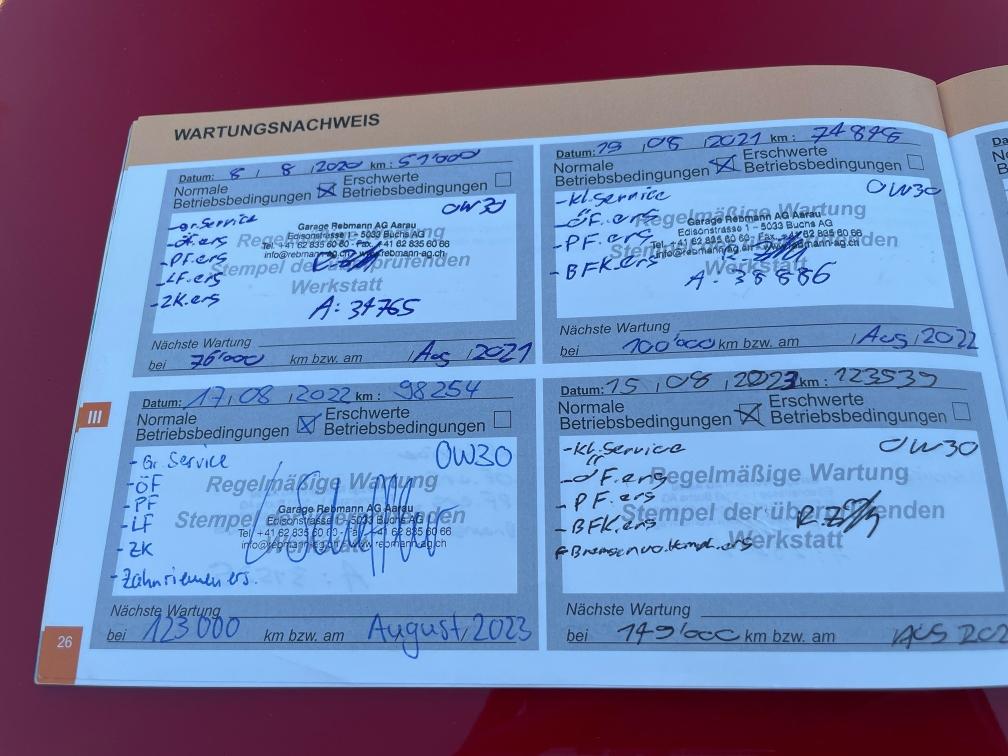 WARTUNGSNACHWEIS
Datum: 8 / 8 / 2020 km: 51'000
Normale Betriebsbedingungen ☒ Erschwerte Betriebsbedingungen ☐
0W30
- gr. Service
- öf. ers
- PF. ers
- LF. ers
- ZK. ers
Regelmäßige Wartung
Stempel der überprüfenden
Werkstatt
Garage Rebmann AG Aarau
Edisonstrasse 1 - 5033 Buchs AG
Tel. +41 62 835 60 60 - Fax. +41 62 835 60 66
info@rebmann-ag.ch - www.rebmann-ag.ch
A: 34765
Nächste Wartung
bei 76'000 km bzw. am / Aug / 2021
Datum: 19 / 08 / 2021 km: 74898
Normale Betriebsbedingungen ☒ Erschwerte Betriebsbedingungen ☐
0W30
- kl. Service
- ÖF. ers
- PF. ers
- BFK. ers
Regelmäßige Wartung
Stempel der überprüfenden
Werkstatt
Garage Rebmann AG Aarau
Edisonstrasse 1 - 5033 Buchs AG
Tel. +41 62 835 60 60 - Fax. +41 62 835 60 66
info@rebmann-ag.ch - www.rebmann-ag.ch
A: 38886
Nächste Wartung
bei 100'000 km bzw. am / Aug / 2022
III
Datum: 17 / 08 / 2022 km: 98254
Normale Betriebsbedingungen ☒ Erschwerte Betriebsbedingungen ☐
0W30
- Gr. Service
- ÖF
- PF
- LF
- ZK
- Zahnriemen ers.
Regelmäßige Wartung
Stempel der überprüfenden
Garage Rebmann AG Aarau
Edisonstrasse 1 - 5033 Buchs AG
Tel. +41 62 835 60 60 - Fax. +41 62 835 60 66
info@rebmann-ag.ch - www.rebmann-ag.ch
Nächste Wartung
bei 123000 km bzw. am August, 2023
Datum: 15 / 08 / 2023 km: 123539
Normale Betriebsbedingungen ☒ Erschwerte Betriebsbedingungen ☐
0W30
- kl. Service
- ÖF. ers
- PF. ers
- BFK. ers
Bremsen vo. kompl. ers
Regelmäßige Wartung
Stempel der überprüfenden
Werkstatt
Nächste Wartung
bei 149'000 km bzw. am AUG 202
26